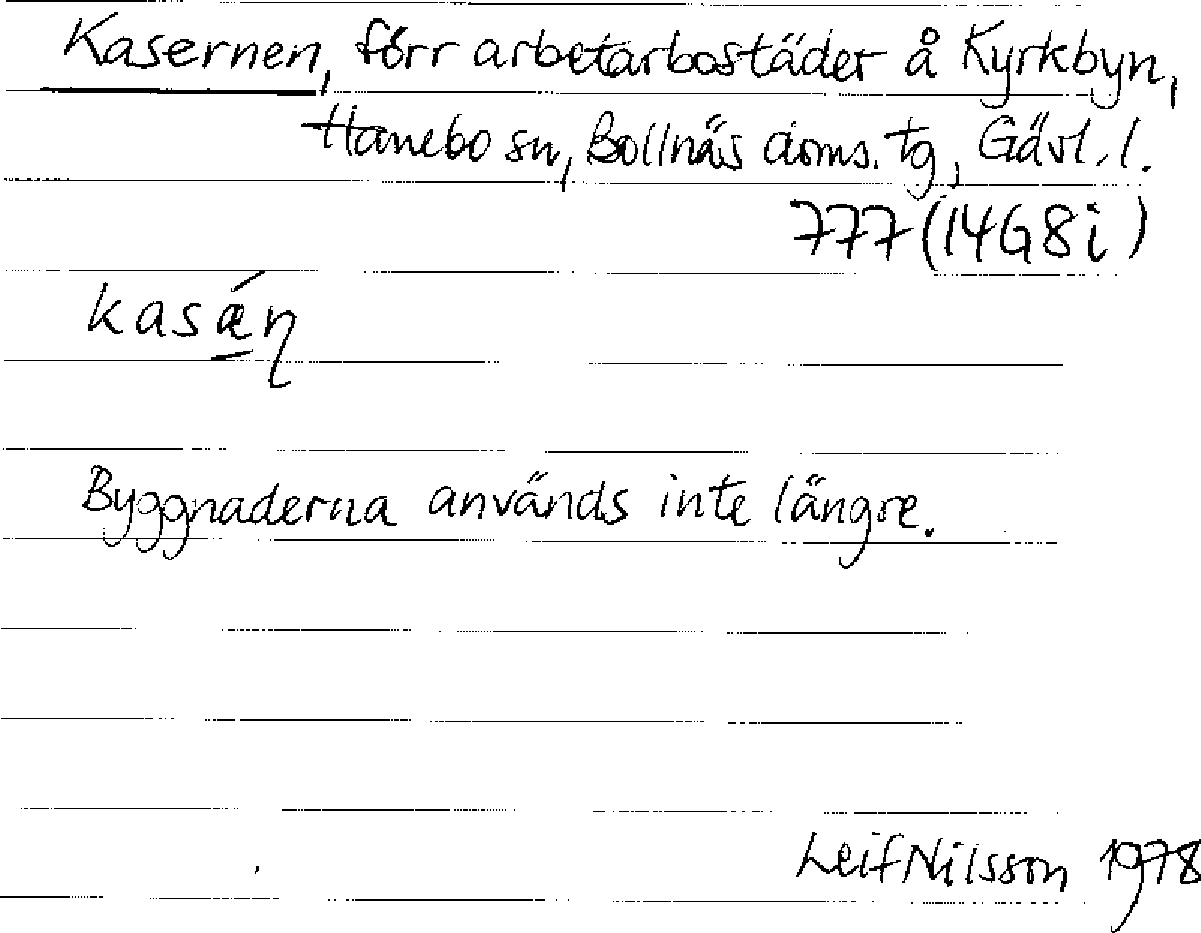 Kasernen, förr arbetarbostäder å Kyrkbyn,
Hanebo sn, Bollnäs doms. tg, Gävl. l.
777 (14G8i)
kasǽɳ
Byggnaderna används inte längre.
Leif Nilsson 1978